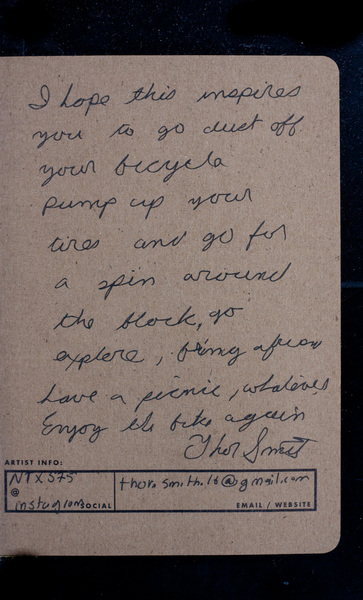 I hope this inspires
you to go dust off
your bicycle
pump up your
tires and go for
a spin around
the block, go
explore, bring a friend
have a picnic, whatever
Enjoy the bike again
Thor Smith
ARTIST INFO:
NTX575
@
instagram SOCIAL
thor.smith.16@gmail.com
EMAIL / WEBSITE